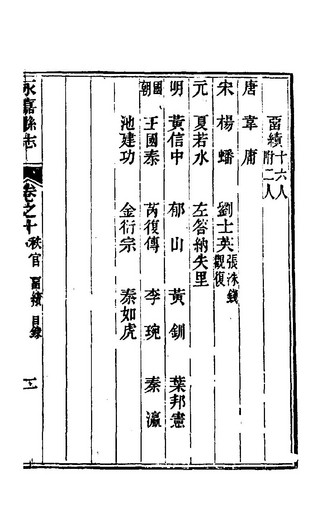 畱績十六人附二人
唐 韋庸
宋 楊蟠 劉士英 張洙錢觀復
元 夏若水 左答納失里
明 黃信中 郁山 黃釧 葉邦憲
國朝 王國泰 芮復傳 李琬 秦瀛
池建功 金衍宗 秦如虎
永嘉縣志 卷之十 秩官 畱績 目錄